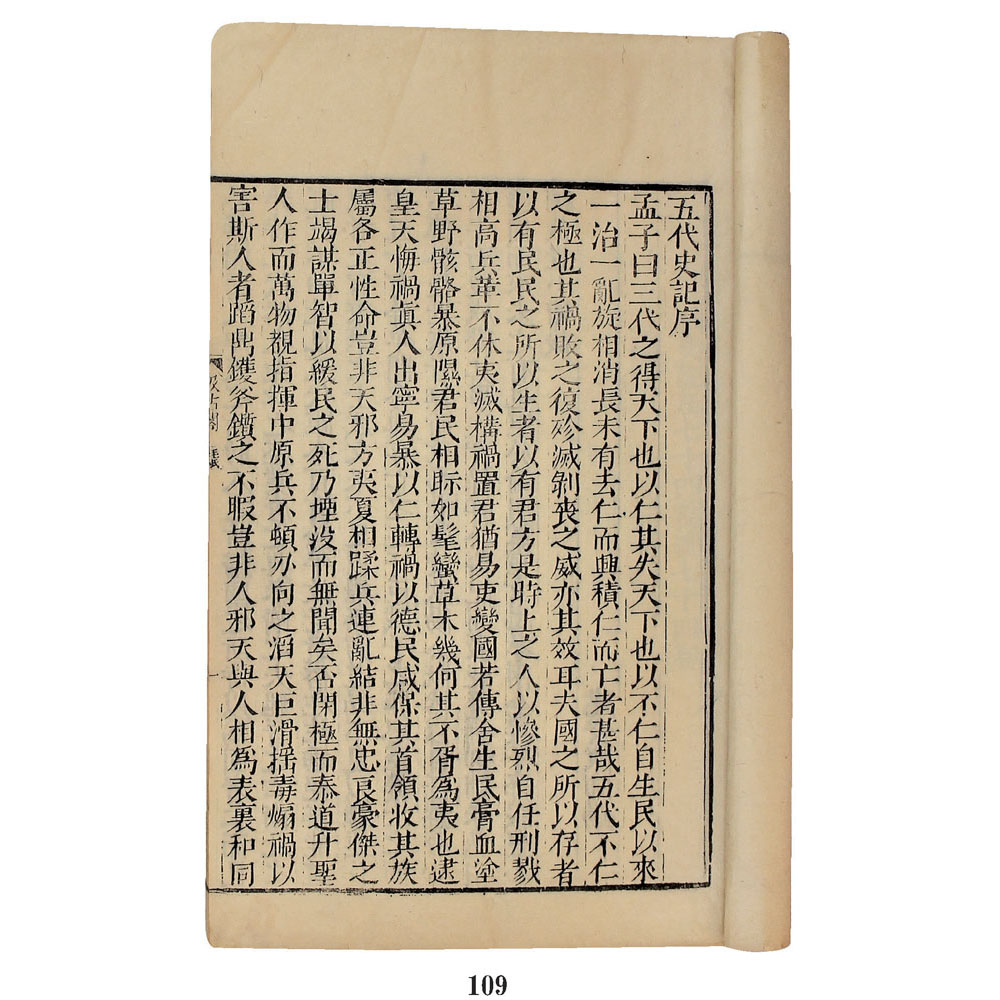 五代史記序
孟子曰三代之得天下也以仁其失天下也以不仁自生民以來
一治一亂旋相消長未有去仁而興積仁而亡者甚哉五代不仁
之極也其禍敗之復殄滅剝喪之威亦其效耳夫國之所以存者
以有民民之所以生者以有君方是時上之人以慘烈自任刑戮
相高兵革不休夷滅構禍置君猶易吏變國若傳舍生民膏血塗
草野骸骼暴原隰君民相眎如髦蠻草木幾何其不胥爲夷也逮
皇天悔禍眞人出寧易暴以仁轉禍以德民咸保其首領收其族
屬各正性命豈非天邪方夷夏相蹂兵連亂結非無忠良豪傑之
士竭謀單智以緩民之死乃堙没而無聞矣否閉極而泰道升聖
人作而萬物覩指揮中原兵不頓刃向之滔天巨滑揺毒煽禍以
害斯人者蹈鼎鑊斧鑕之不暇豈非人邪天與人相爲表裏和同
一
109